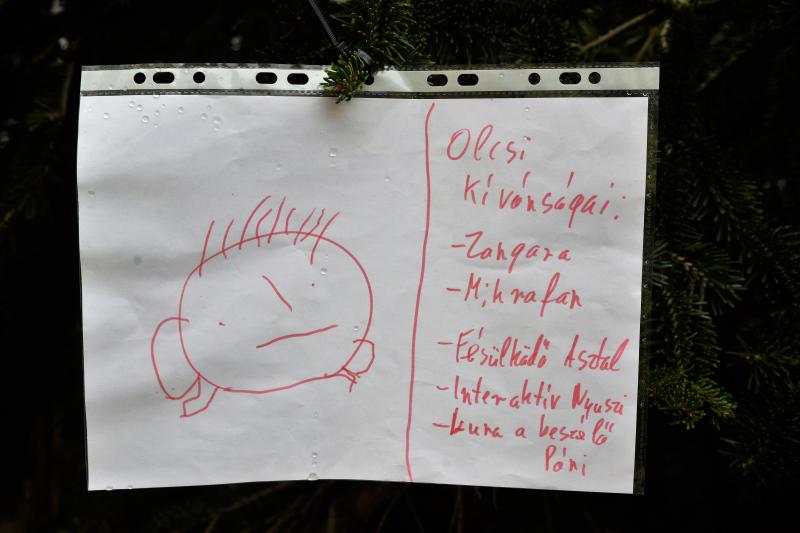 Olcsi
Kívónságai:
-Zongara
-Mikrafan
-Fésülkádő Asztal
-Interaktív Nyuszi
-Luna a beszélő
Póni